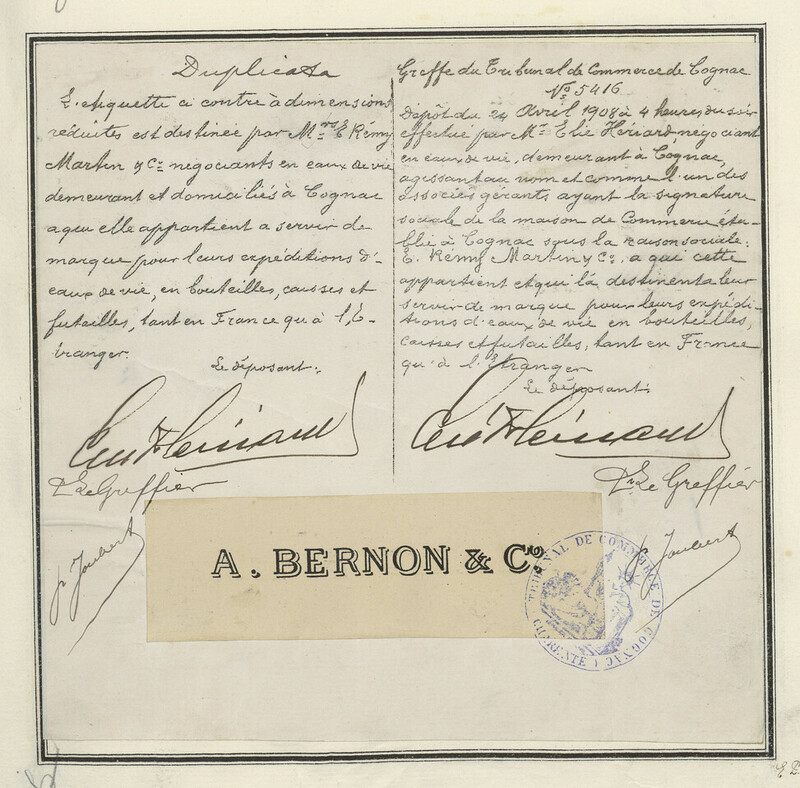 Duplicata
L'etiquette ci contre à dimensions
réduites est destinée par Mrs E Rémy
Martin & Cie négociants en eaux de vie
demeurant et domiciliés à Cognac
a qui elle appartient a servir de
marque pour leurs expéditions d'-
eaux de vie, en bouteilles, caisses et
futailles, tant en France qu'à l'é-
tranger.
Le déposant:
Le Greffier
p. Joubert
Greffe du Tribunal de Commerce de Cognac
No 5416
Dépôt du 24 Avril 1908 à 4 heures du soir
effectué par Mr Elie Hériard, négociant
en eaux de vie, demeurant à Cognac,
agissant au nom et comme l'un des
associés gérants ayant la signature
sociale de la maison de Commerce éta-
blie à Cognac sous la raison sociale:
E. Rémy Martin & Co, a qui cette
appartient et qui la destinent a leur
servir de marque pour leurs expédi-
tions d'eaux de vie en bouteilles,
caisses et futailles, tant en France
qu'à l'Etranger
Le déposant:
Le Greffier
p. Joubert
A. BERNON & Co.
TRIBUNAL DE COMMERCE DE COGNAC
(CHARENTE)